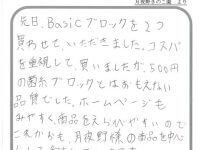 月夜野きのこ園 より
先日、Basicブロックを2つ
買わせて、いただきました。コスパ
を重視して買いましたが、500円
の菌糸ブロックとはおもえない
品質でした。ホームページも
みやすく商品をえらびやすいので
これからも、月夜野様の商品を中心